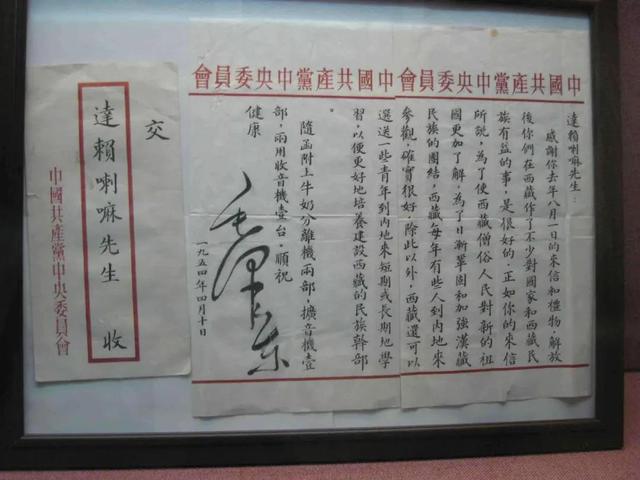 中國共産黨中央委員會
達賴喇嘛先生：
感謝你去年八月一日的來信和禮物，解放
後你們在西藏作了不少對國家和西藏民
族有益的事，是很好的．正如你的來信
所說，為了使西藏僧俗人民對新的祖
國更加了解，為了日漸鞏固和加強漢藏
民族的團結，西藏每年有些人到內地來
參觀，確實很好，除此以外，西藏還可以
中國共産黨中央委員會
選送一些青年到內地來短期或長期地學
習，以便更好地培養建設西藏的民族幹部
。
隨函附上牛奶分離機兩部，擴音機壹
部，兩用收音機壹台．順祝
健康
毛澤東
一九五四年四月十日
交
達賴喇嘛先生 收
中國共産黨中央委員會